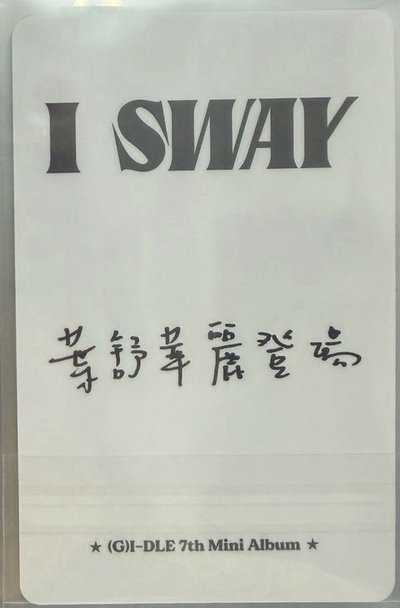 I SWAY
葉舒華麗登場
★ (G)I-DLE 7th Mini Album ★